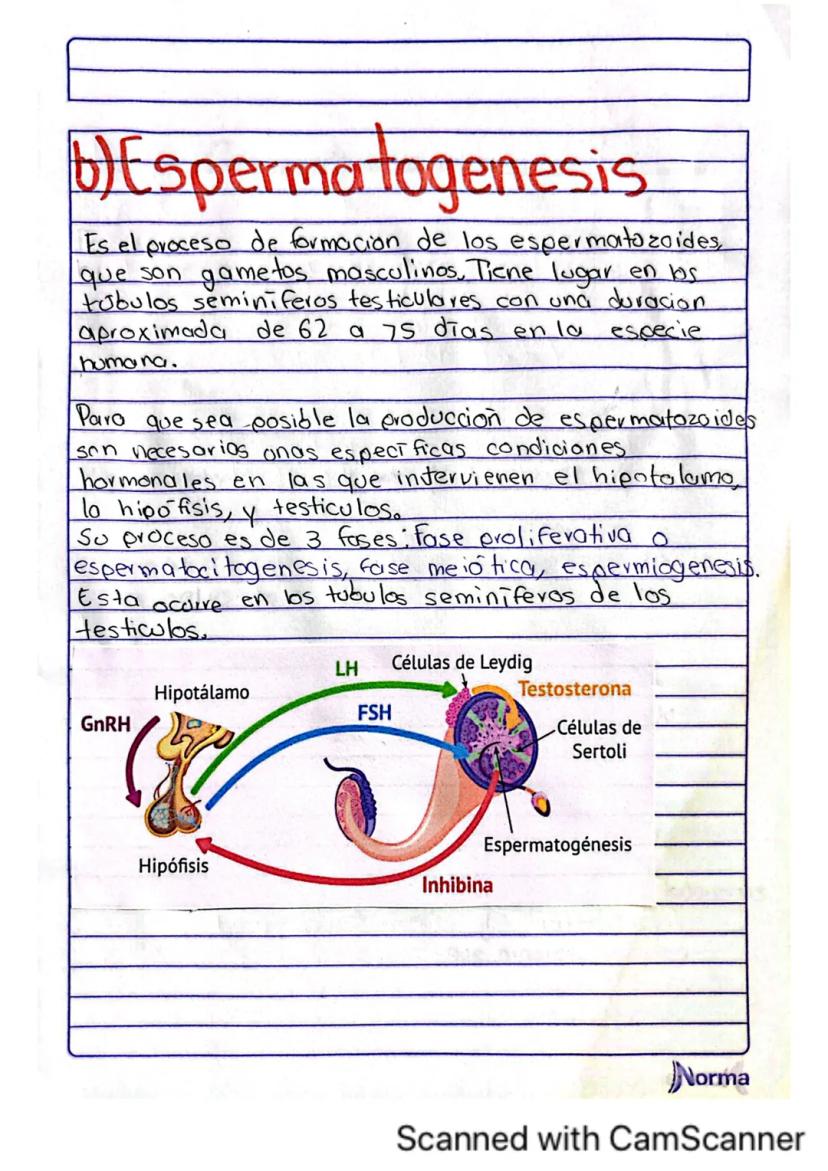 b) Espermatogenesis
Es el proceso de formación de los espermatozoides,
que son gametos masculinos. Tiene lugar en los
túbulos seminíferos testiculares con una duración
aproximada de 62 a 75 días en la especie
humana.
Para que sea posible la producción de espermatozoides
son necesarios unas específicas condiciones
hormonales en las que intervienen el hipotalamo,
la hipófisis, y testiculos.
Su proceso es de 3 fases: Fase proliferativa o
espermatocitogenesis, fase meiótica, espermiogenesis.
Esta ocurre en los tubulos seminíferos de los
testiculos.
LH
Células de Leydig
Hipotálamo
Testosterona
GnRH
FSH
Células de
Sertoli
Espermatogénesis
Hipófisis
Inhibina
Norma
Scanned with CamScanner